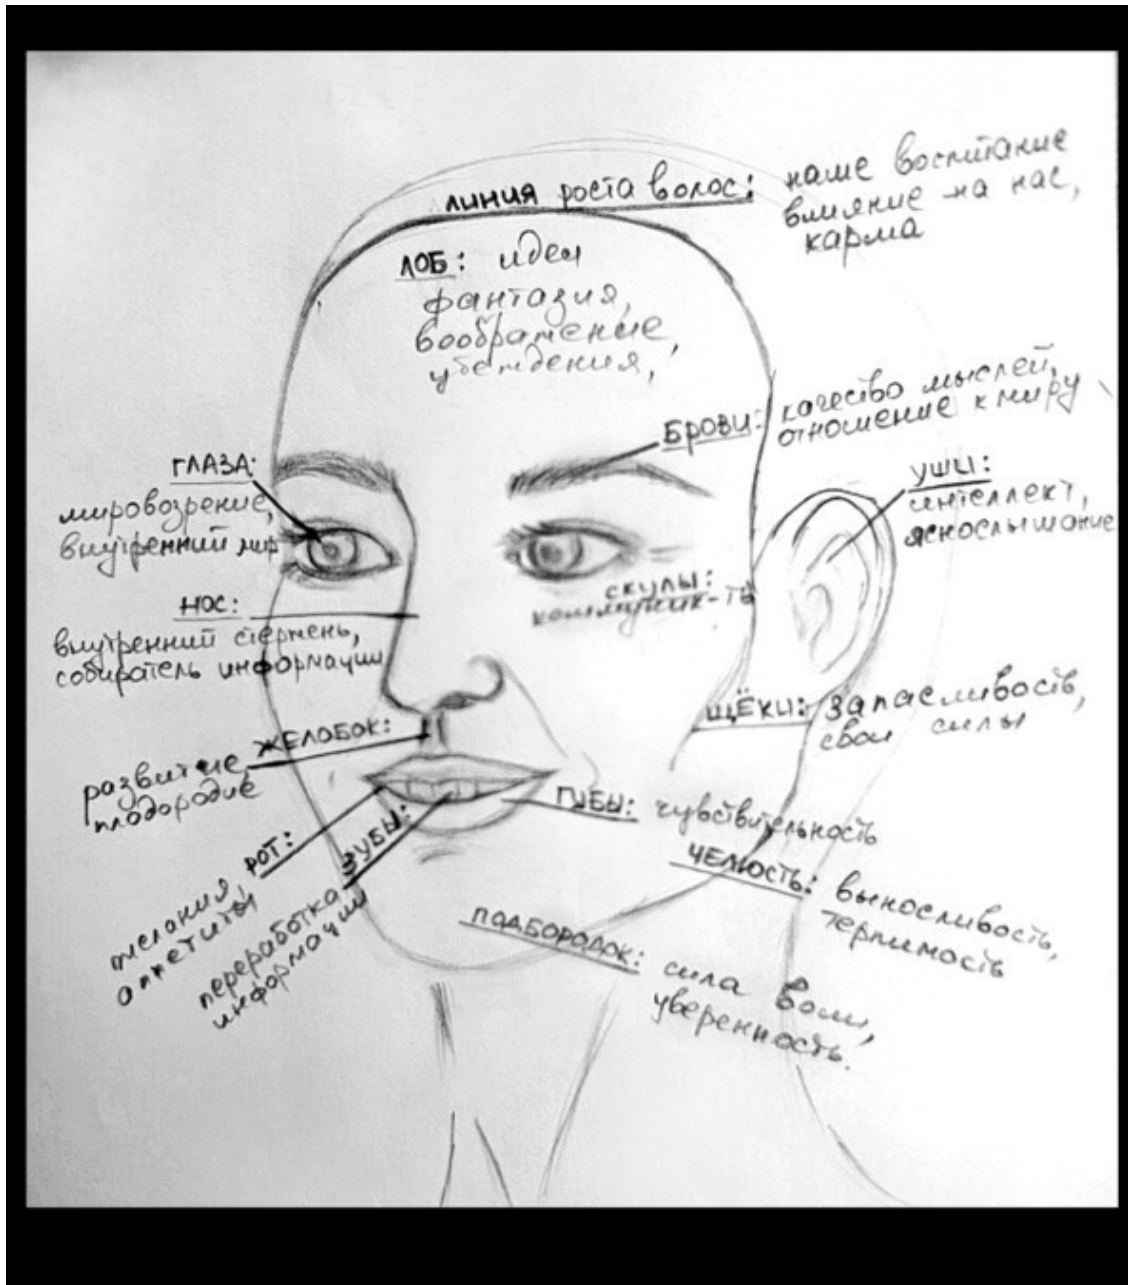 ЛИНИЯ роста волос: наше воспитание
влияние на нас,
карма
ЛОБ: идеи
фантазия,
воображение,
убеждения,
БРОВИ: качество мыслей,
отношение к миру
ГЛАЗА:
мировозрение,
внутренний мир
УШИ:
интеллект,
яснослышание
СКУЛЫ:
коммуник-ть
НОС:
внутренний стержень,
собиратель информации
ЩЁКИ: запасливость,
свои силы
ЖЕЛОБОК:
развитие,
плодородие
ГУБЫ: чувствительность
РОТ:
желания
аппетиты
ЗУБЫ:
переработка
информации
ЧЕЛЮСТЬ: выносливость,
терпимость
ПОДБОРОДОК: сила воли,
уверенность.